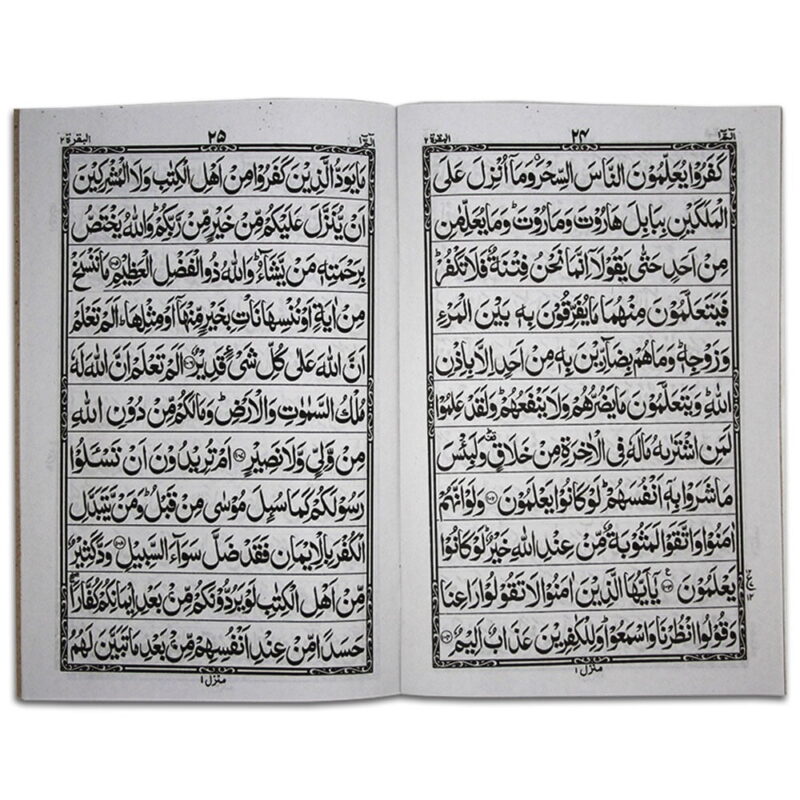 الٓمّٓ ١
٢٤
البقرة ٢
كَفَرُوْا يُعَلِّمُوْنَ النَّاسَ السِّحْرَ ۗ وَمَاۤ اُنْزِلَ عَلَى
الْمَلَكَيْنِ بِبَابِلَ هَارُوْتَ وَمَارُوْتَ ؕ وَمَا يُعَلِّمٰنِ
مِنْ اَحَدٍ حَتّٰى يَقُوْلَاۤ اِنَّمَا نَحْنُ فِتْنَةٌ فَلَا تَكْفُرْ ؕ
فَيَتَعَلَّمُوْنَ مِنْهُمَا مَا يُفَرِّقُوْنَ بِهٖ بَيْنَ الْمَرْءِ
وَزَوْجِهٖ ؕ وَمَا هُمْ بِضَآرِّيْنَ بِهٖ مِنْ اَحَدٍ اِلَّا بِاِذْنِ
اللّٰهِ ؕ وَيَتَعَلَّمُوْنَ مَا يَضُرُّهُمْ وَلَا يَنْفَعُهُمْ ؕ وَلَقَدْ عَلِمُوْا
لَمَنِ اشْتَرٰىهُ مَا لَهٗ فِى الْاٰخِرَةِ مِنْ خَلَاقٍ ؕ وَلَبِئْسَ
مَا شَرَوْا بِهٖۤ اَنْفُسَهُمْ ؕ لَوْ كَانُوْا يَعْلَمُوْنَ ﴿١٠٢﴾ وَلَوْ اَنَّهُمْ
اٰمَنُوْا وَاتَّقَوْا لَمَثُوْبَةٌ مِّنْ عِنْدِ اللّٰهِ خَيْرٌ ؕ لَوْ كَانُوْا
يَعْلَمُوْنَ ﴿١٠٣﴾ يٰۤاَيُّهَا الَّذِيْنَ اٰمَنُوْا لَا تَقُوْلُوْا رَاعِنَا
وَقُوْلُوا انْظُرْنَا وَاسْمَعُوْا ؕ وَلِلْكٰفِرِيْنَ عَذَابٌ اَلِيْمٌ ﴿١٠٤﴾
منزل ١
الٓمّٓ ١
٢٥
البقرة ٢
مَا يَوَدُّ الَّذِيْنَ كَفَرُوْا مِنْ اَهْلِ الْكِتٰبِ وَلَا الْمُشْرِكِيْنَ
اَنْ يُّنَزَّلَ عَلَيْكُمْ مِّنْ خَيْرٍ مِّنْ رَّبِّكُمْ ؕ وَاللّٰهُ يَخْتَصُّ
بِرَحْمَتِهٖ مَنْ يَّشَآءُ ؕ وَاللّٰهُ ذُو الْفَضْلِ الْعَظِيْمِ ﴿١٠٥﴾ مَا نَنْسَخْ
مِنْ اٰيَةٍ اَوْ نُنْسِهَا نَاْتِ بِخَيْرٍ مِّنْهَاۤ اَوْ مِثْلِهَا ؕ اَلَمْ تَعْلَمْ
اَنَّ اللّٰهَ عَلٰى كُلِّ شَىْءٍ قَدِيْرٌ ﴿١٠٦﴾ اَلَمْ تَعْلَمْ اَنَّ اللّٰهَ لَهٗ
مُلْكُ السَّمٰوٰتِ وَالْاَرْضِ ؕ وَمَا لَكُمْ مِّنْ دُوْنِ اللّٰهِ
مِنْ وَّلِىٍّ وَّلَا نَصِيْرٍ ﴿١٠٧﴾ اَمْ تُرِيْدُوْنَ اَنْ تَسْئَلُوْا
رَسُوْلَكُمْ كَمَا سُئِلَ مُوْسٰى مِنْ قَبْلُ ؕ وَمَنْ يَّتَبَدَّلِ
الْكُفْرَ بِالْاِيْمَانِ فَقَدْ ضَلَّ سَوَآءَ السَّبِيْلِ ﴿١٠٨﴾ وَدَّ كَثِيْرٌ
مِّنْ اَهْلِ الْكِتٰبِ لَوْ يَرُدُّوْنَكُمْ مِّنْۢ بَعْدِ اِيْمَانِكُمْ كُفَّارًا ۖۚ
حَسَدًا مِّنْ عِنْدِ اَنْفُسِهِمْ مِّنْۢ بَعْدِ مَا تَبَيَّنَ لَهُمُ
منزل ١